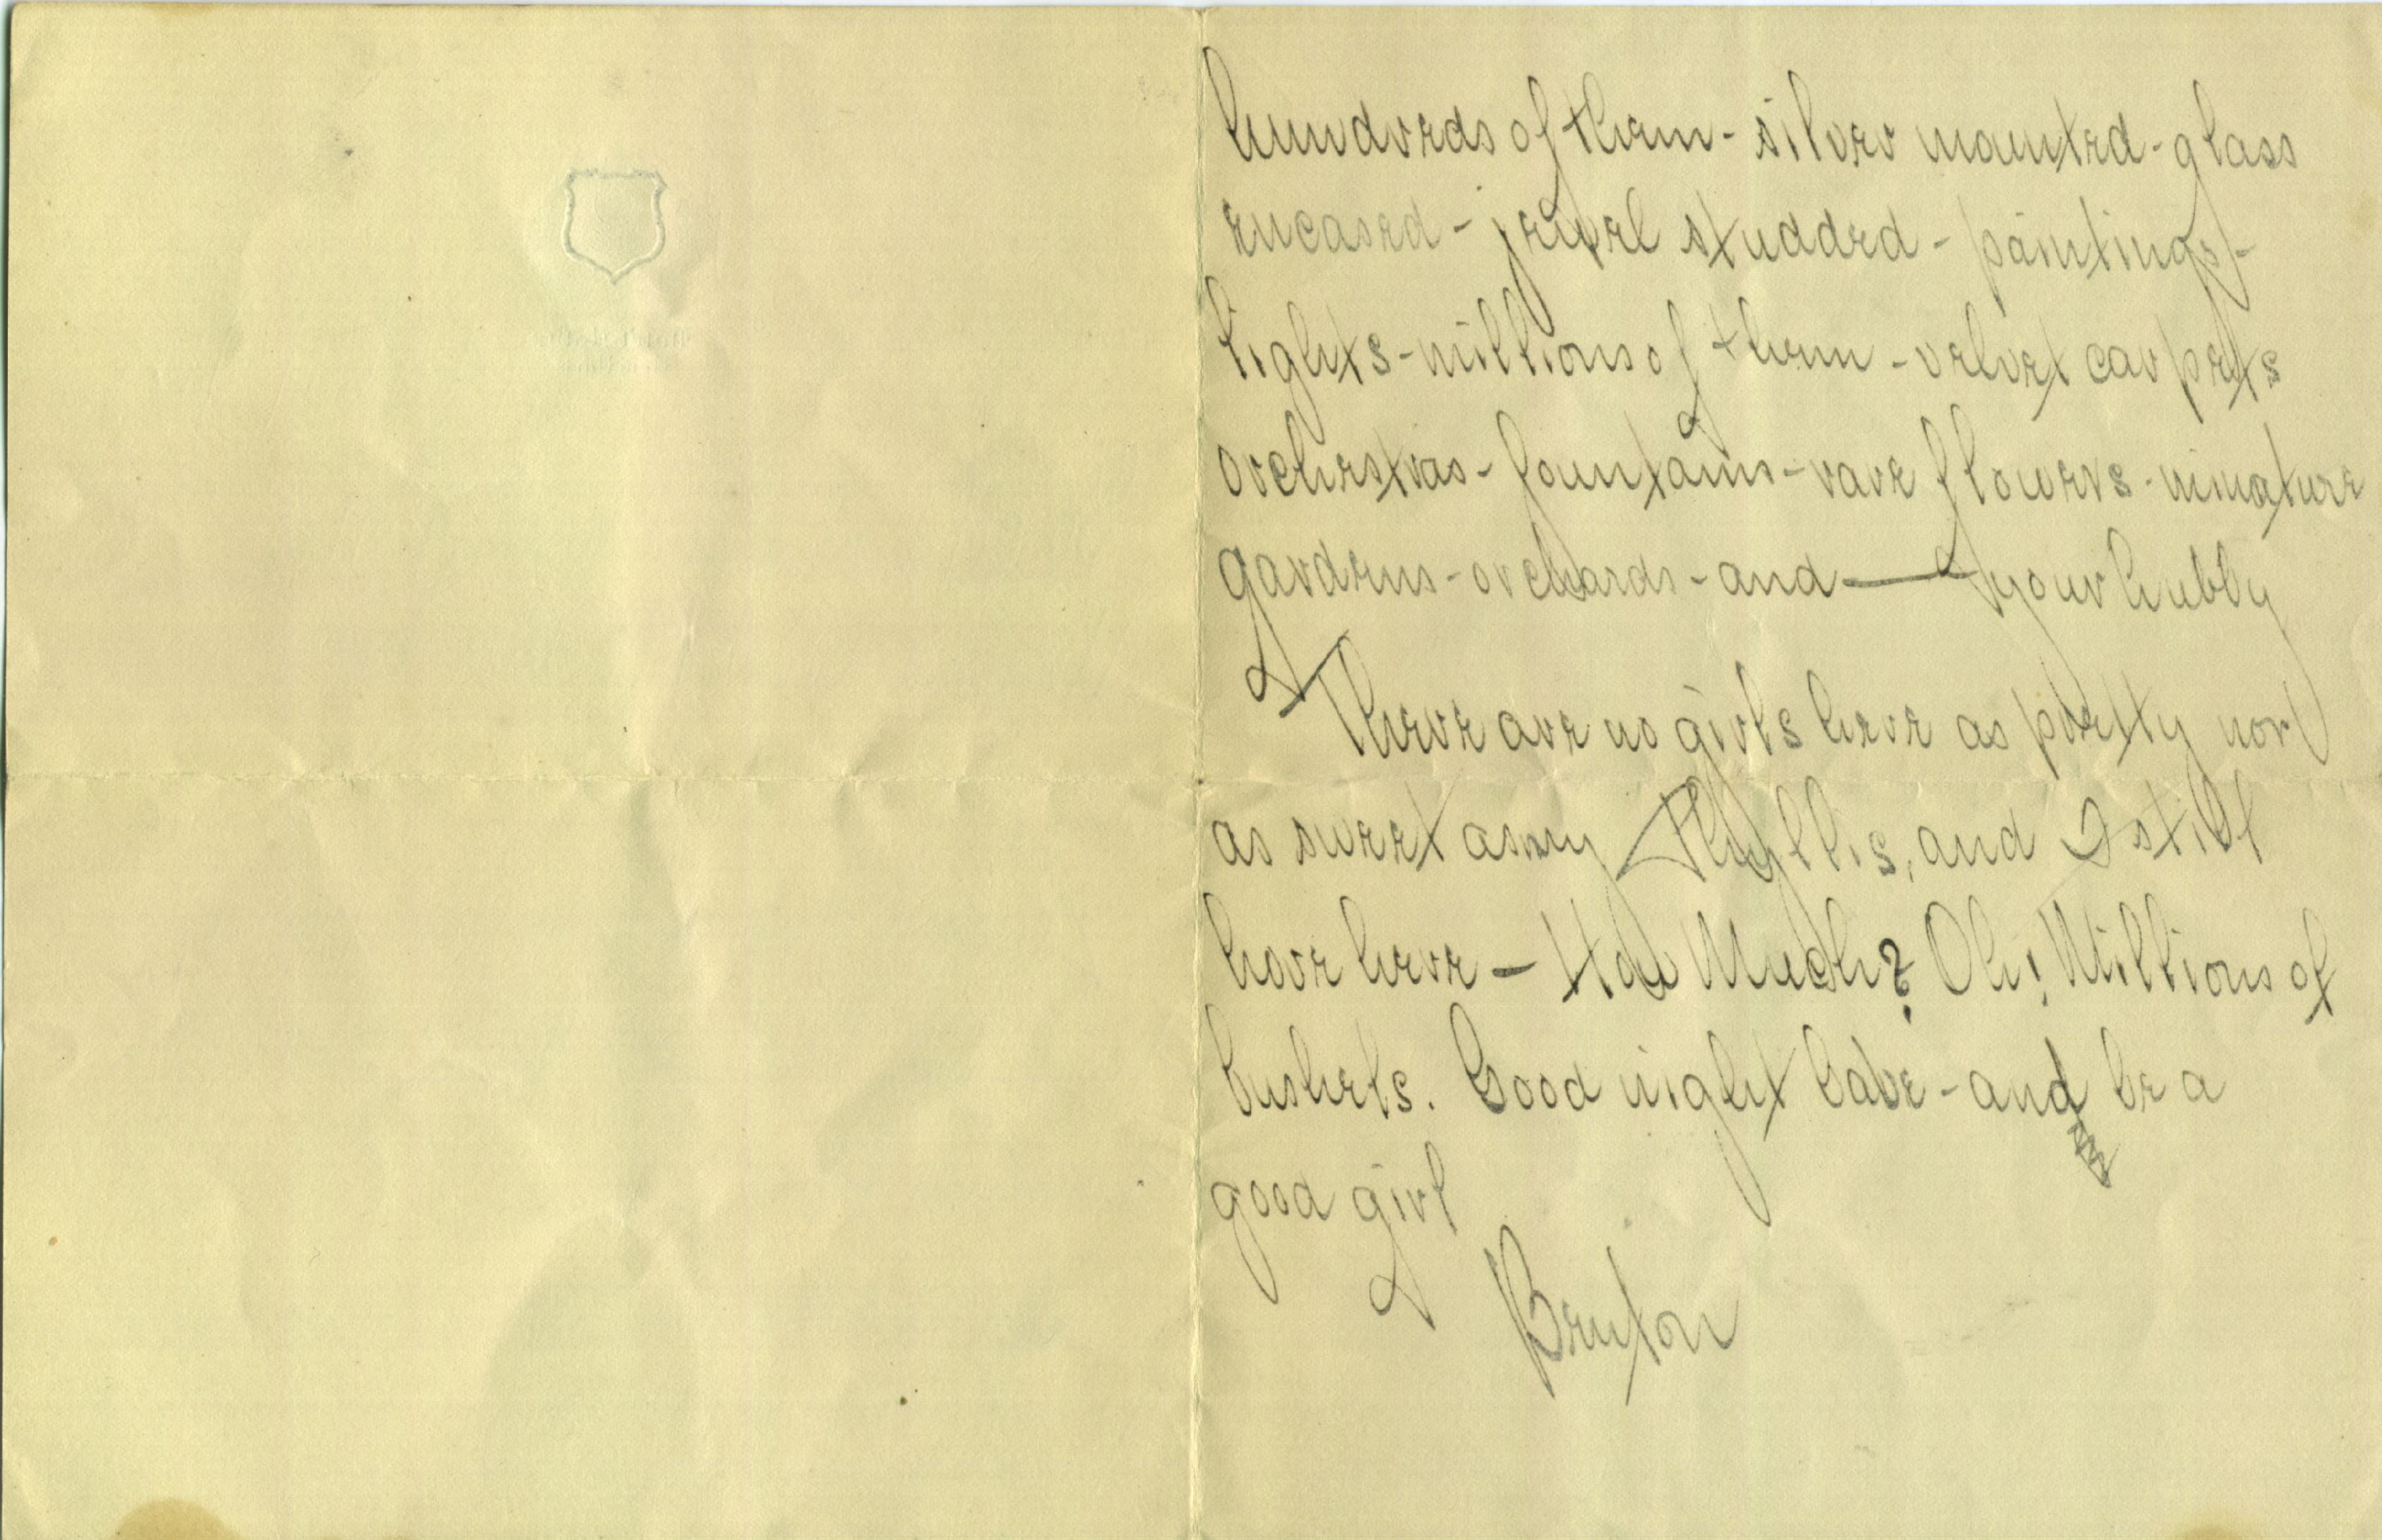 hundreds of them - silver mounted - glass
encased - jewel studded - paintings -
lights - millions of them - velvet carpets
orchestras - fountains - rare flowers - minature
gardens - orchards - and — your hubby
There are no girls here as pretty nor
as sweet as my Phyllis, and I still
love here — How Much? Oh! Millions of
bushels. Good night babe - and be a
good girl
Benton